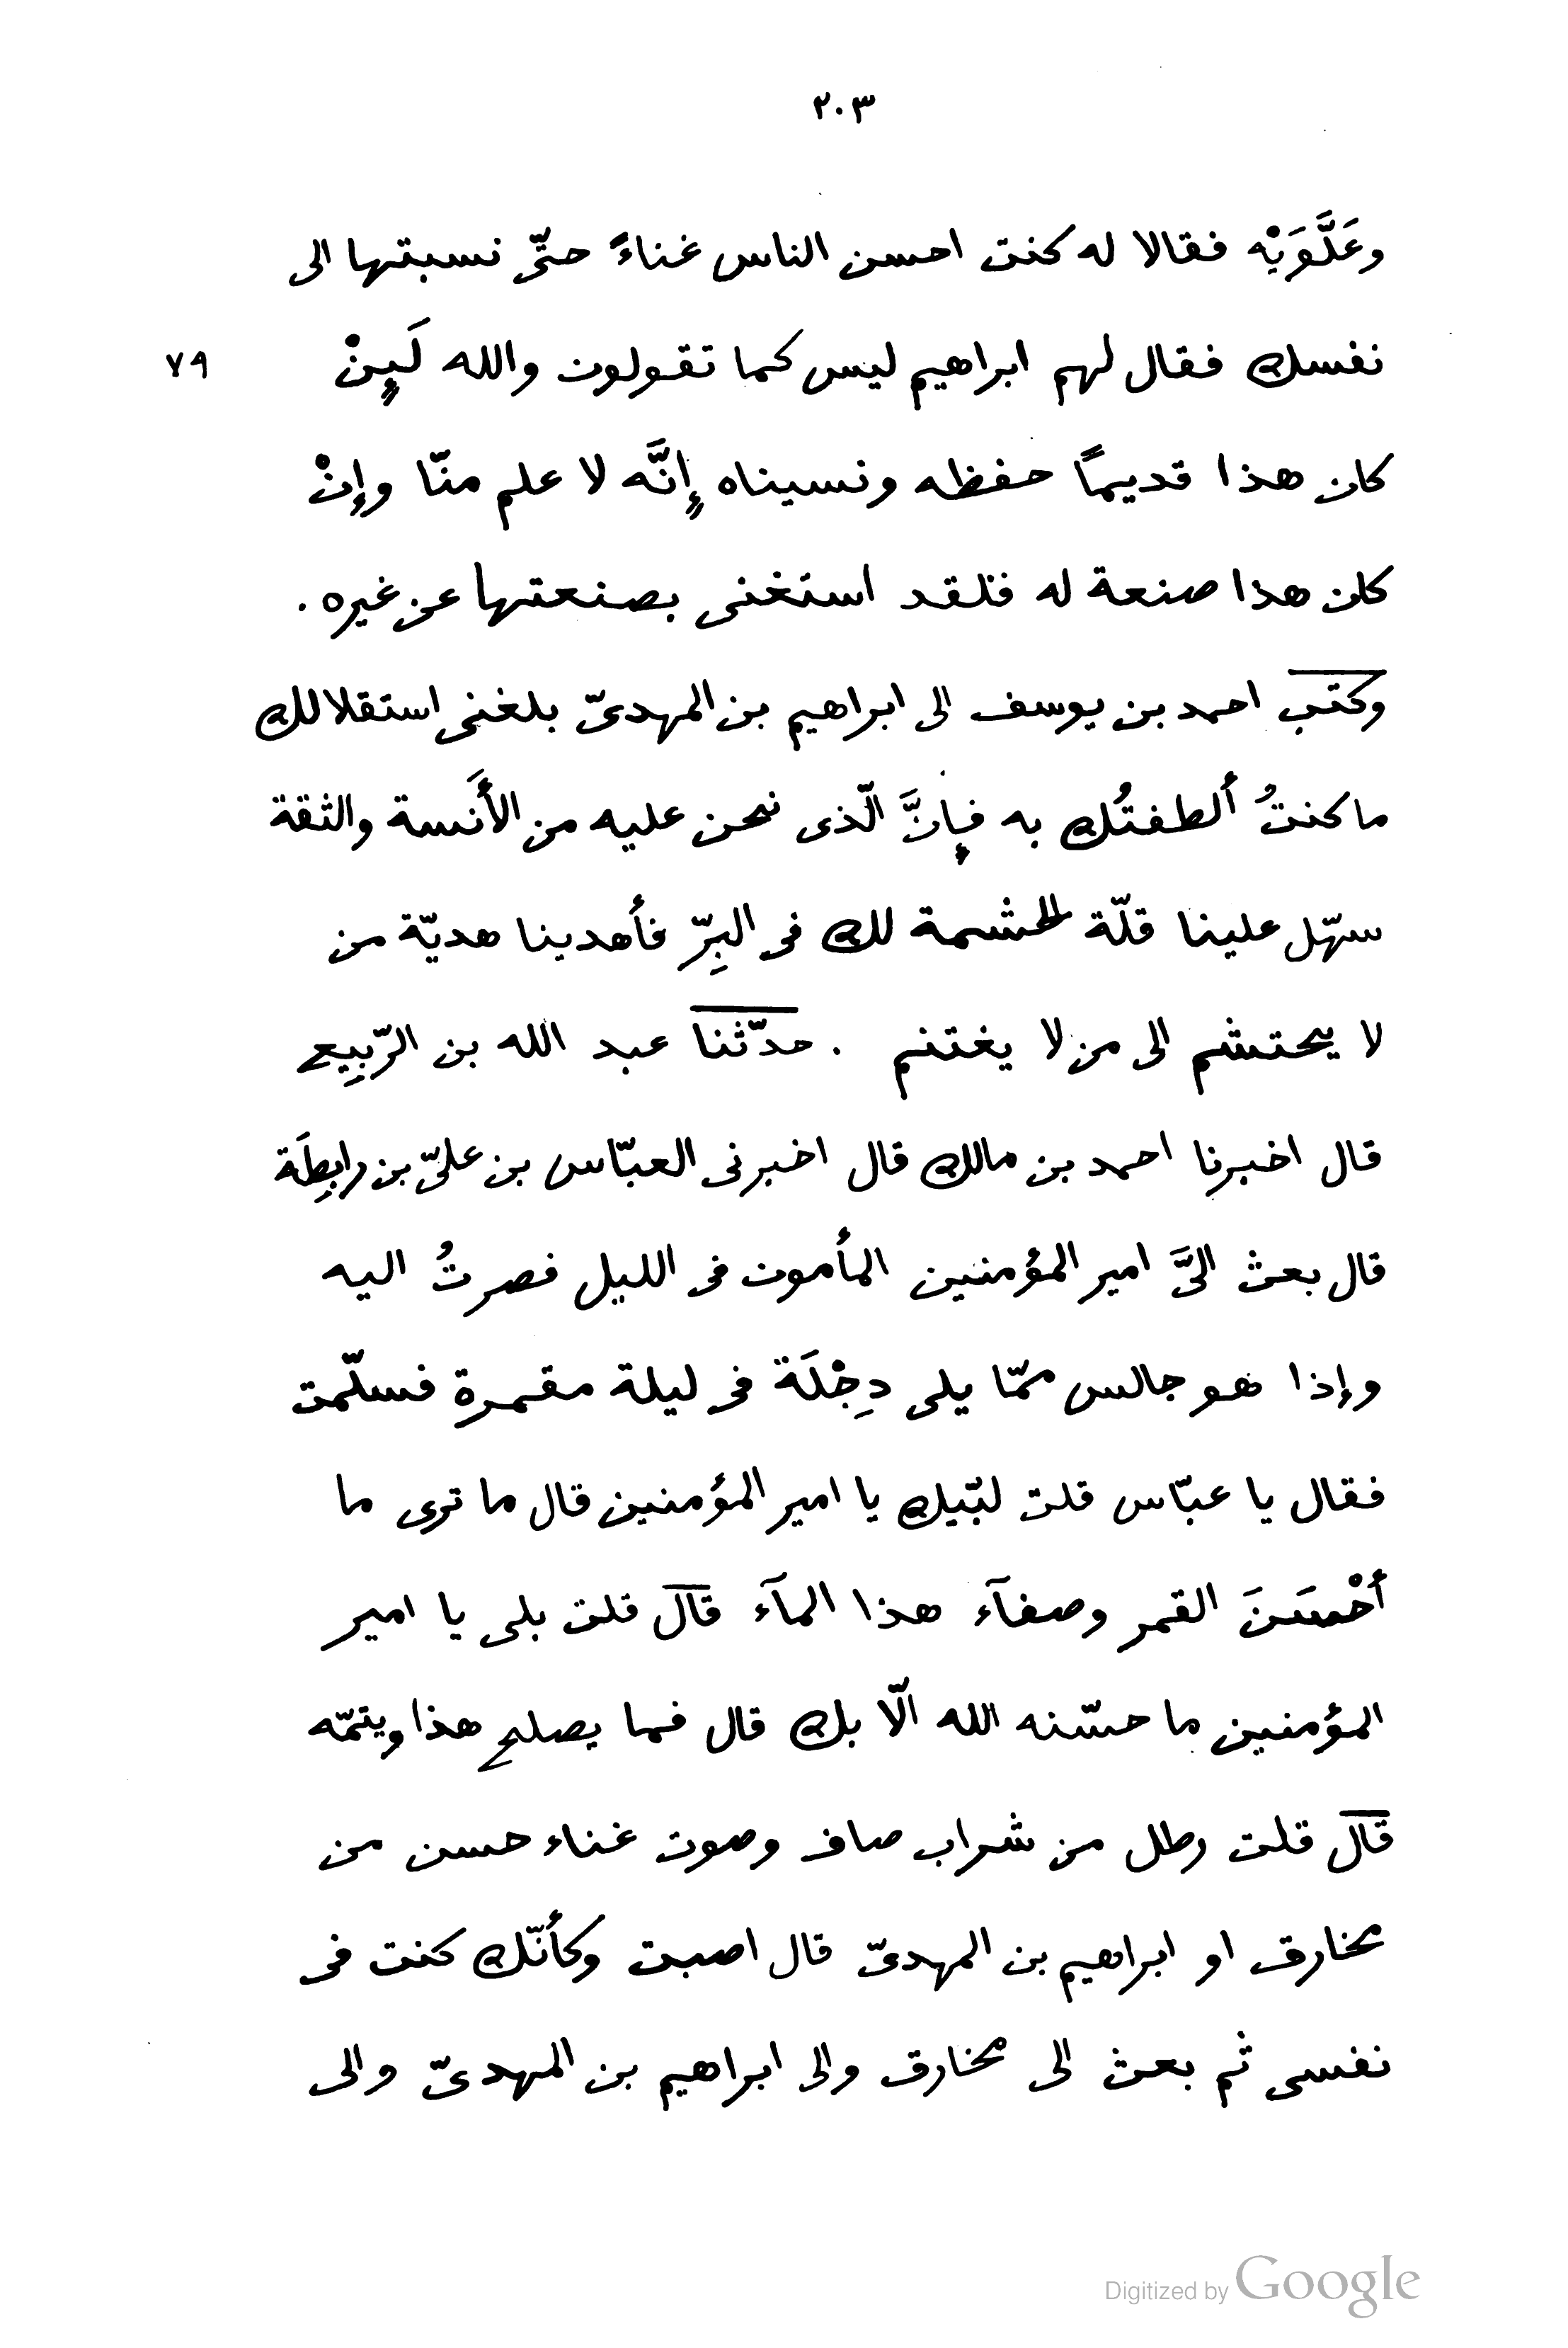 ٢٠٣
وعَلَّوَيْه فقالا له كنت احسن الناس غناءً حتّى نسبتها الى
نفسك فقال لهم ابراهيم ليس كما تقولون والله لَيِنْ ٧٩
كان هذا قديمًا حفظه ونسيناه إِنَّه لا علم منّا وإنْ
كان هذا صنعة له فلقد استغنى بصنعتها عن غيره .
وكتب احمد بن يوسف الى ابراهيم بن المهدىّ بلغنى استقلالك
ما كنتُ ألطفتُك به فإنَّ الّذى نحن عليه من الأَنسة والثقة
سهّل علينا قلّة للحشمة لك فى البِرّ فأهدينا هديّة من
لا يحتشم الى من لا يغتنم . حدّثنا عبد الله بن الرّبِيع
قال اخبرنا احمد بن مالك قال اخبرنى العبّاس بن علىّ بن رابِطَة
قال بعث الىَّ امير المؤمنين المأمون فى الليل فصرتُ اليه
وإذا هو جالس ممّا يلى دِجْلَة فى ليلة مقمرة فسلّمت
فقال يا عبّاس قلت لبّيك يا امير المؤمنين قال ما ترى ما
أحْسَنَ القمر وصفآء هذا المآء قال قلت بلى يا امير
المؤمنين ما حسّنه الله الّا بك قال فما يصلح هذا ويتمّه
قال قلت رطل من شراب صاف وصوت غناء حسن من
مخارق او ابراهيم بن المهدىّ قال اصبت وكأنّك كنت فى
نفسى ثم بعث الى مخارق والى ابراهيم بن المهدىّ والى
Digitized by Google